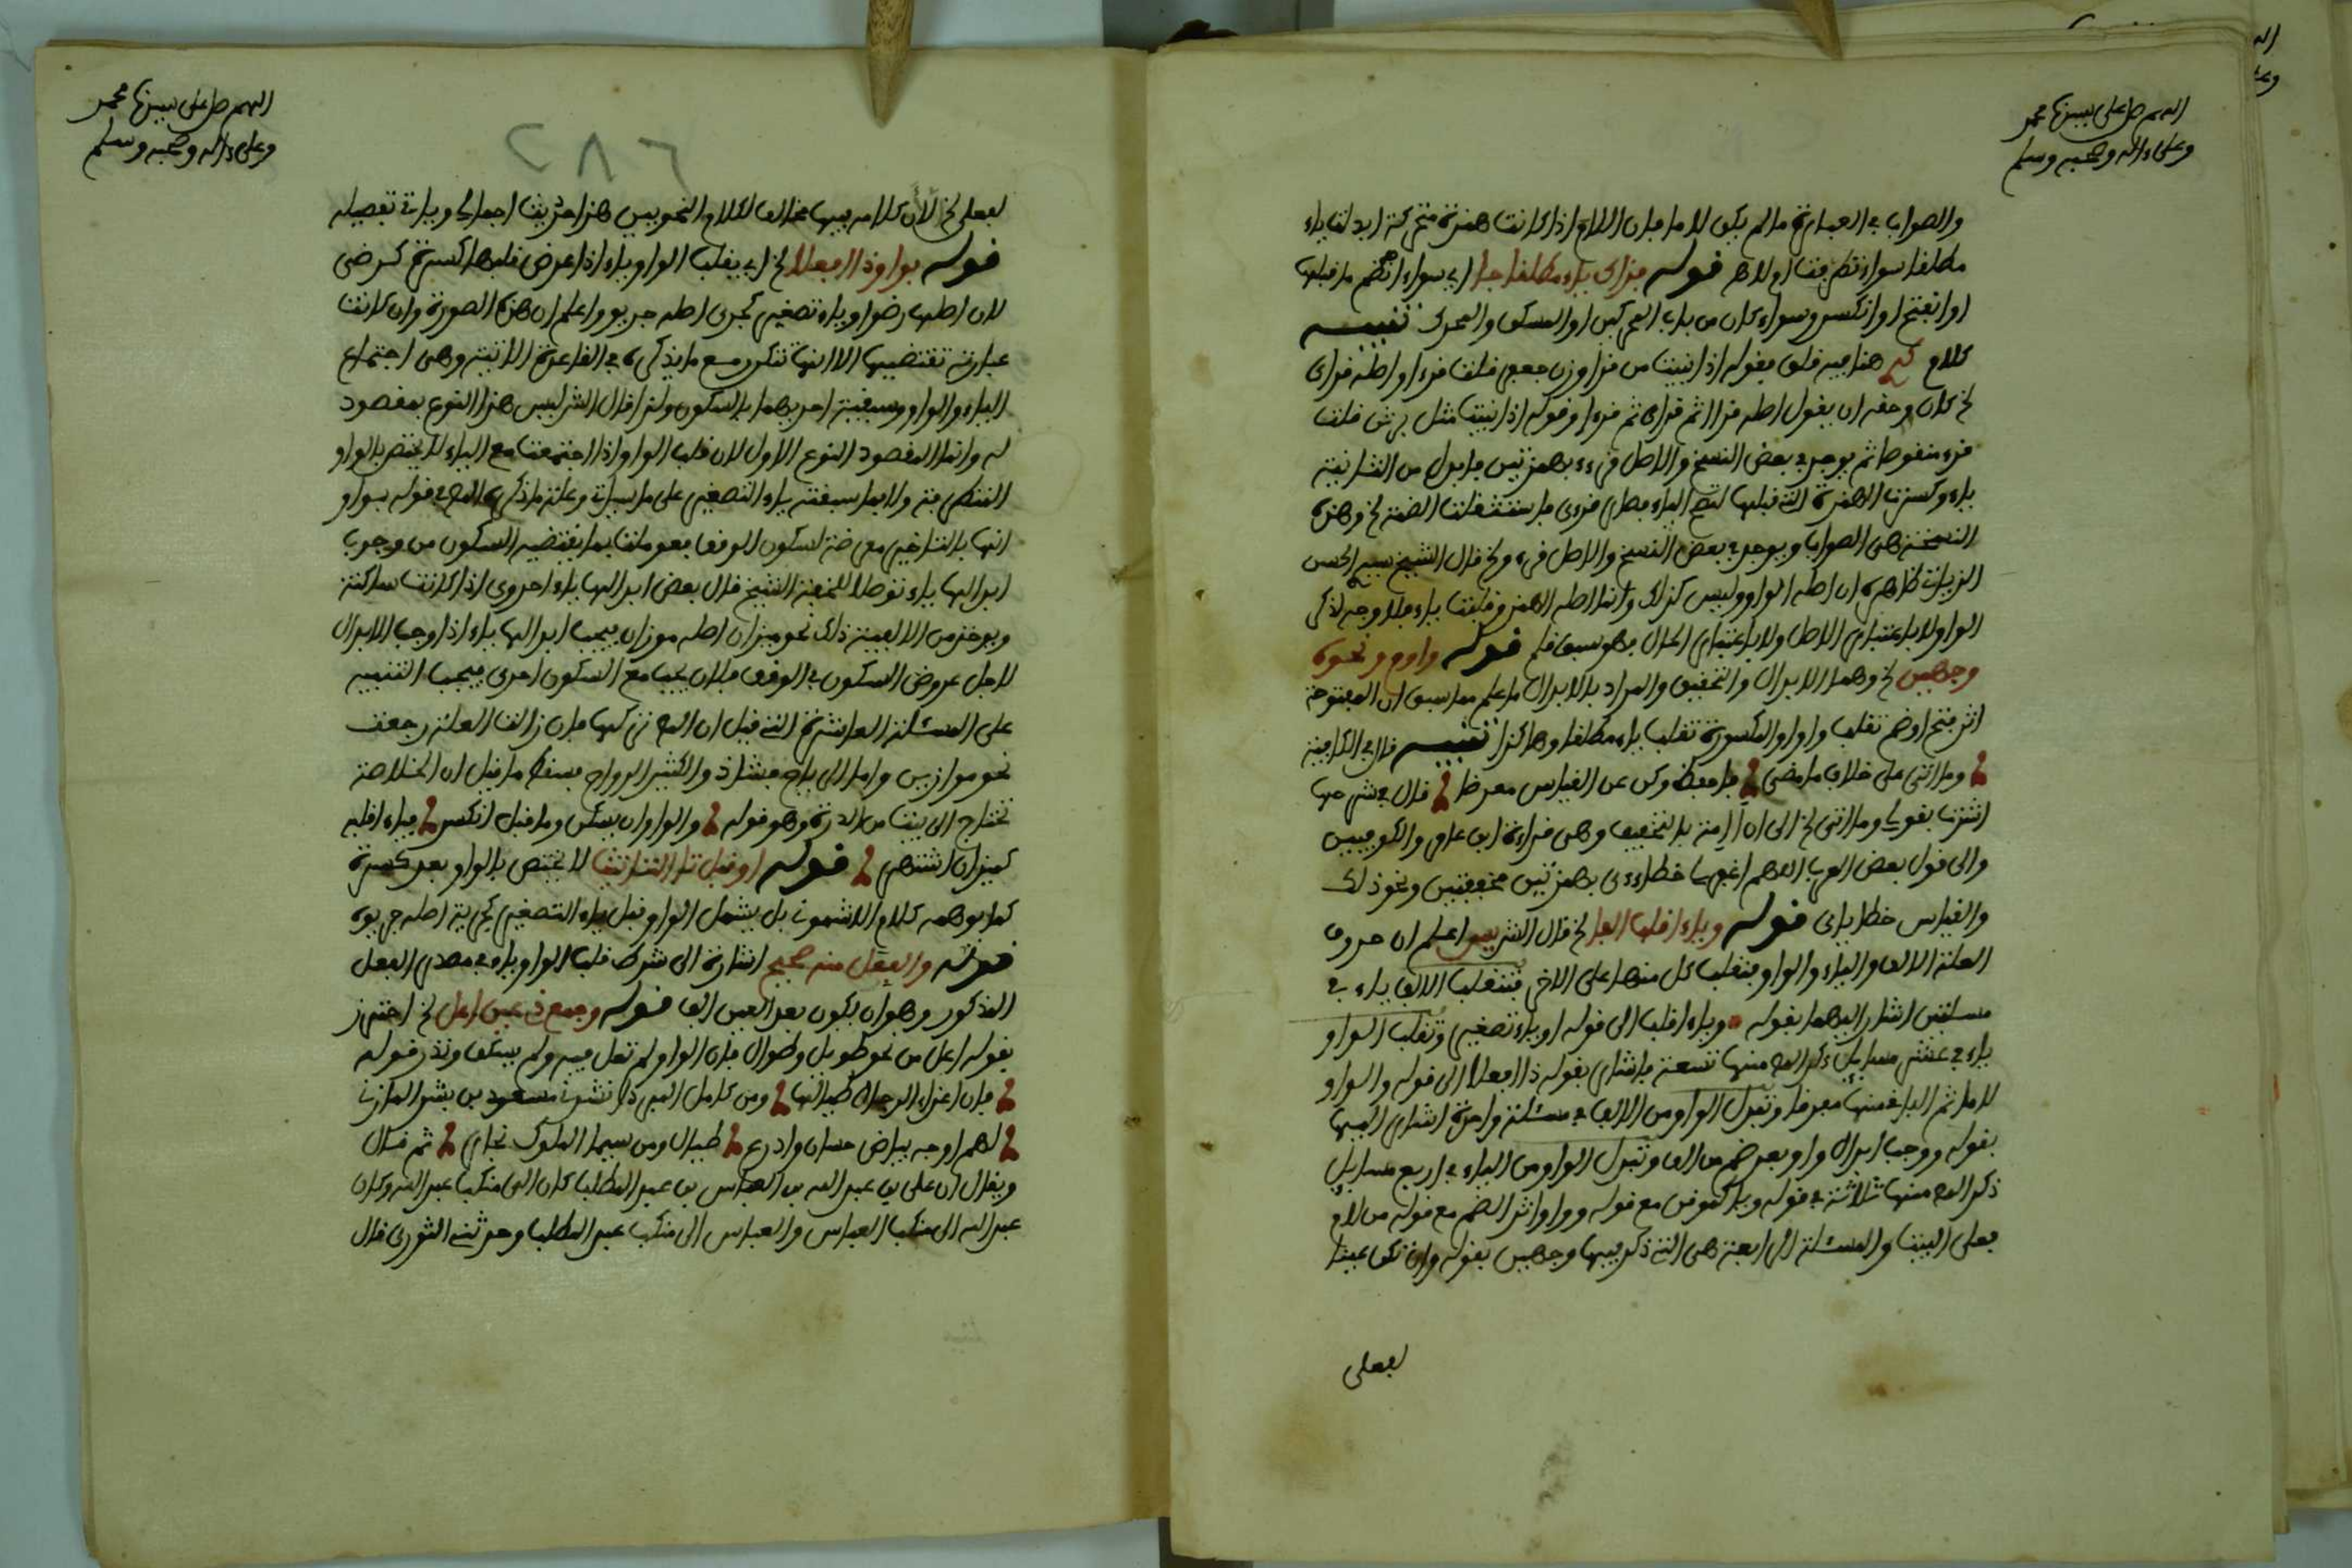 اللهم صل على سيدنا محمد
وعلى ءاله وصحبه وسلم
والصواب في العبارة ما لم يكن لاما فإن اللام إذا كانت همزة متحركة ابدلت ياء
مطلقا سواء تطرفت أو لا هـ قوله فذاك ياء مطلقا جا أي سواء انضم ما قبلها
أو انفتح أو انكسر وسواء كان من باب أو السكون والمحرك تنبيه
كلام هنا فيه قلق بقوله إذا بنيت من قرأ وزن جعفر قلت قرءا واصله قرأى
لخ كان وحقه ان يقول اصله قرأأ ثم قرأى ثم قرءا وقوله إذا بنيت مثل برثن قلت
قرء منقوصا ثم يوجد في بعض النسخ والاصل قرءء بهمزتين فابدل من الثانية
ياء وكسرت الهمزة التي قبلها لتصح الياء فصار قرءى فاستثقلت الضمة لخ وهذه
النسخة هي الصواب ويوجد في بعض النسخ والاصل قرء ولخ قال الشيخ سيدي الحسن
الزياتي ظاهره ان اصله الواو وليس كذلك وانما اصله الهمز وقلبت ياء فلا وجه لذكر
الواو لا باعتبار الاصل ولا باعتبار الحال فهو سبق قلم قوله واوم ونحوه
وجهين لخ وهما الابدال والتحقيق والمراد بالابدال ما علم مما سبق ان المفتوحة
اثر فتح أو ضم تقلب واوا والمكسورة تقلب ياء مطلقا وهاكذا تنبيه قال في الكافية
وما اتى على خلاف ما مضى فاحفظ وكن عن القياس معرضا قال في شرحها
اشرت بقولي وما اتى لخ الى ان أئمة بالتحقيق وهي قراءة ابن عامر والكوفيين
والى قول بعض العرب اللهم اغفر لي خطاءءى بهمزتين محققتين ونحو ذلك
والقياس خطايائى قوله وياء اقلب الفا لخ قال الشريف اعلم ان حروف
العلة الالف والياء والواو ينقلب كل منها على الاخر فتنقلب الالف ياء في
مسئلتين اشار اليهما بقوله وياء اقلب الى قوله او ياء تصغير وتقلب الواو
ياء في عشر مسايل ذكر المص منها تسعة فاشار بقوله ذا افعلا الى قوله والواو
لاما ثم الباقي منها مفرقا وتبدل الواو من الالف في مسئلة واحدة اشار اليها
بقوله ووجب ابدال واو بعد ضم من الف وتبدل الواو من الياء في اربع مسايل
ذكر المص منها ثلاثة في قوله ويا كموقن مع قوله وواوا اثر الضم مع قوله من لام
فعلى البيت والمسئلة الرابعة هي التي ذكر فيها وجهين بقوله وان تكن عينا
لفعلى
اللهم صل على سيدنا محمد
وعلى ءاله وصحبه وسلم
٢٨٦
لفعلى لخ لان كلامه فيها مخالف لكلام النحويين هذا حديث اجمالي وياتي تفصيله
قوله بواو ذا افعلا لخ أي يقلب الواو ياء إذا عرض قلبها كسرة كرضى
لان اصلها رضو او ياء تصغير كجرى اصله جريو واعلم ان هذه الصورة وان كانت
عبارته تقتضيها الا انها تتكرر مع ما يذكره في القاعدة الاتية وهي اجتماع
الياء والواو وسبقية احديهما بالسكون ولذا قال الش ليس هذا النوع بمقصود
له وانما المقصود النوع الاول لان قلب الواو إذا اجتمعت مع الياء لا يختص بالواو
المتطرفة ولا بما سبقته ياء التصغير على ما سياتي وعلة ما ذكره المص في قوله بواو
انها بالتاخير معرضة لسكون الوقف فعوملت بما يقتضيه السكون من وجوب
ابدالها ياء توصلا للخفة الشيخ قال بعض ابدالها ياء احروي اذا كانت ساكنة
ويوخذ من الالفية ذلك نحو ميزان اصله موزان فيجب ابدالها ياء إذا وجب الابدال
لاجل عروض السكون في الوقف فلان يجب مع السكون احرى فيجب التنبيه
على المسئلة العاشرة التي قيل ان المص تركها فإن زالت العلة رجعت
نحو موازين واما الرياح فشاذ والكثير الرواح فسقط ما قيل ان الخلاصة
تحتاج الى بيت من الدرة وهو قوله والواو ان يسكن وما قبل انكسر فياء اقلبه
كميزان اشتهر قوله او قبل تا التانيث لا يختص بالواو بعد كسرة
كما يوهمه كلام الاشموني بل يشمل الواو قبل ياء التصغير كجرية اصله جريوة
قوله والفعل منه صحيح اشارة الى شرط قلب الواو ياء في مصدر الفعل
المذكور وهو ان يكون بعد العين الف قوله وجمع ذي عين اعل لخ احترز
بقوله اعل من نحو طويل وطوال فإن الواو لم تعل فيه ولم يسكن وندر قوله
فإن اعزاء الرجال طيالها ومن كامل المبرد انشدني مسعود بن بشر المازني
لهم اوجه بياض حسان واذرع طيال ومن سيما الملوك نجار ثم قال
ويقال ان علي بن عبد الله بن العباس بن عبد المطلب كان الى منكب عبد الله وكان
عبد الله الى منكب العباس والعباس الى منكب عبد المطلب وحدثني الثوري قال